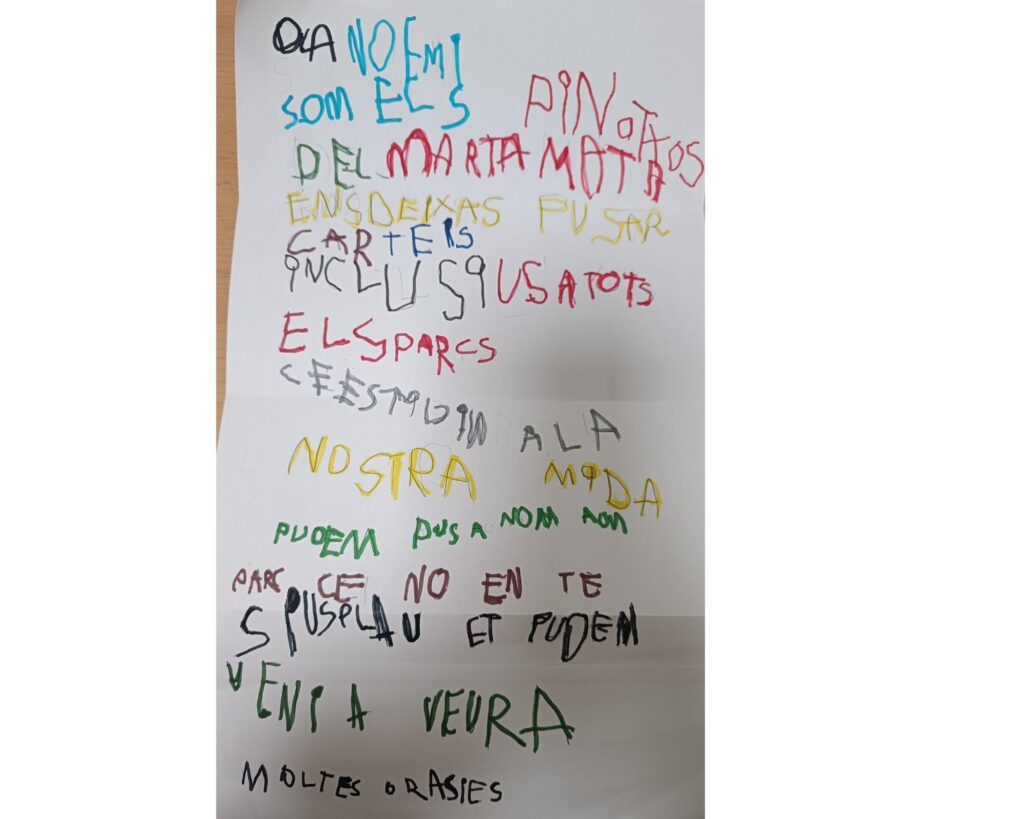 OLA NOEMI
SOM ELS PINOTXOS
DEL MARTA MATA
ENS DEIXAS PUSAR
CARTEIS
INCLUSIUS A TOTS
ELS PARCS
CE ESTIGIN A LA
NOSTRA MIDA
PUDEM PUSA NOM AON
PARC CE NO EN TE
SPUSPLAU ET PUDEM
VENI A VEURA
MOLTES GRASIES